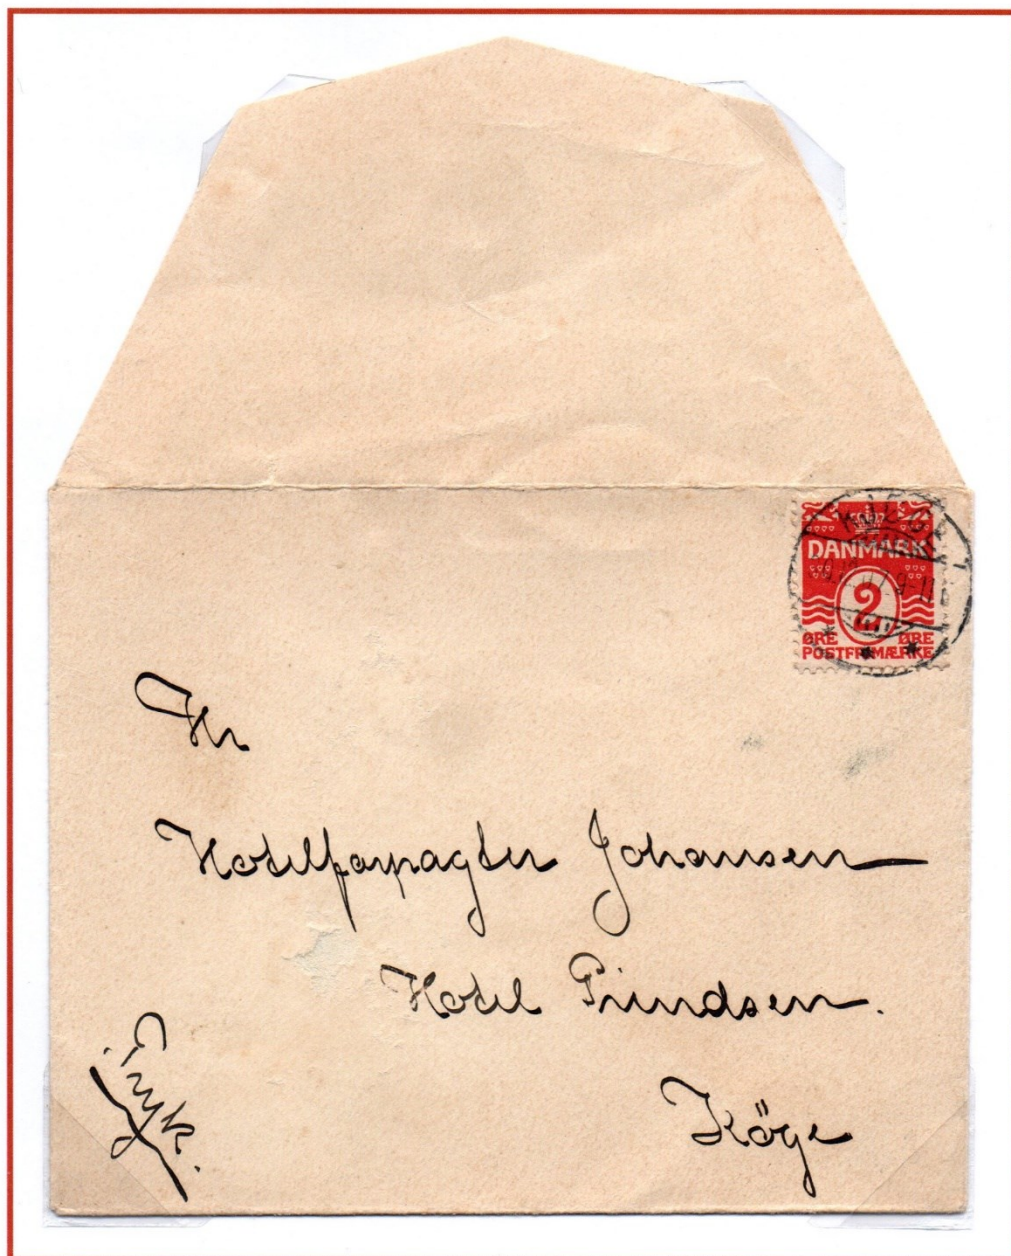 DANMARK
2
ØRE ØRE
POSTFRIMÆRKE
Hr
Hotelforpagter Johansen
Hotel Prindsen.
Köge
Tryk.